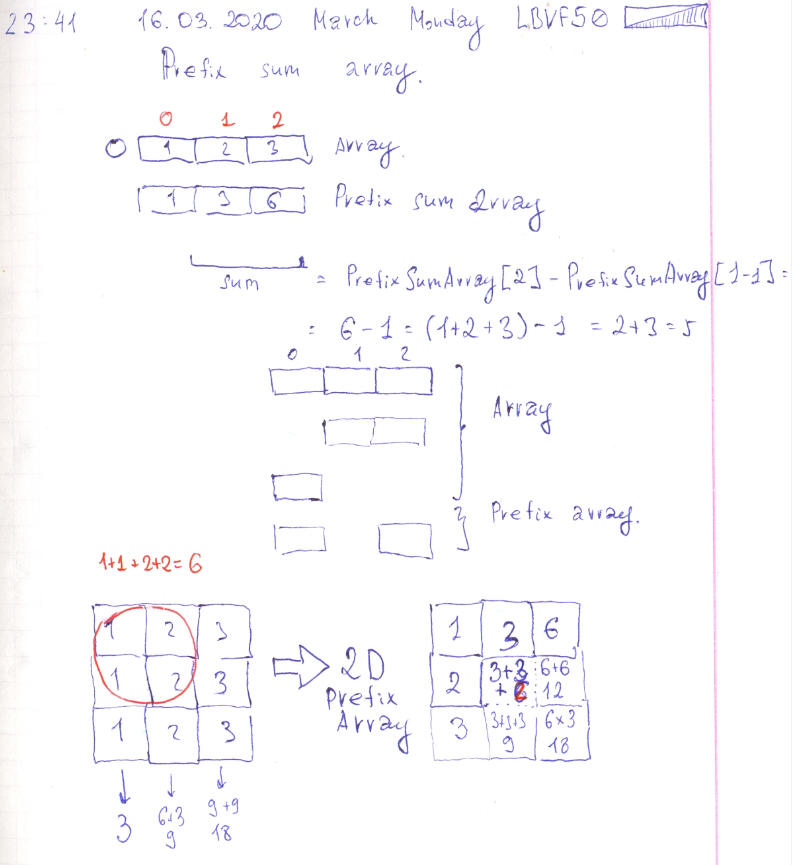 23:41 16.03.2020 March Monday LBVF50
Prefix sum array.
0 1 2
0 1 2 3 Array.
1 3 6 Prefix sum array
sum = PrefixSumArray[2] - PrefixSumArray[1-1] =
= 6-1 = (1+2+3)-1 = 2+3=5
0 1 2
Array
Prefix array.
1+1+2+2=6
1 2 3
1 2 3
1 2 3
2D
Prefix
Array
1 3 6
2 3+3 6+6
+ 12
3 3+3+3 6x3
9 18
3 6+3 9+9
9 18